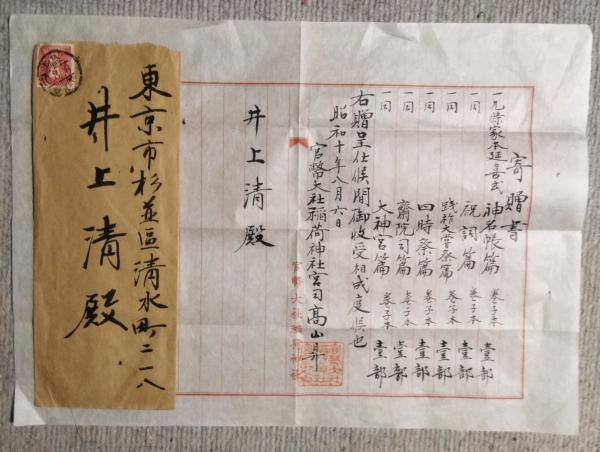 寄贈書
一九條家本延喜式 神名帳篇 巻子本 壹部
一同 祝詞篇 巻子本 壹部
一同 踐祚大嘗祭篇 巻子本 壹部
一同 四時祭篇 巻子本 壹部
一同 齋院司篇 巻子本 壹部
一同 大神宮篇 巻子本 壹部
右贈呈仕候間御收受相成度候也
昭和十年八月六日
官幣大社稲荷神社宮司高山昇
井上清殿
官幣大社稲荷神社
東京市杉並區清水町二一八
井上清殿